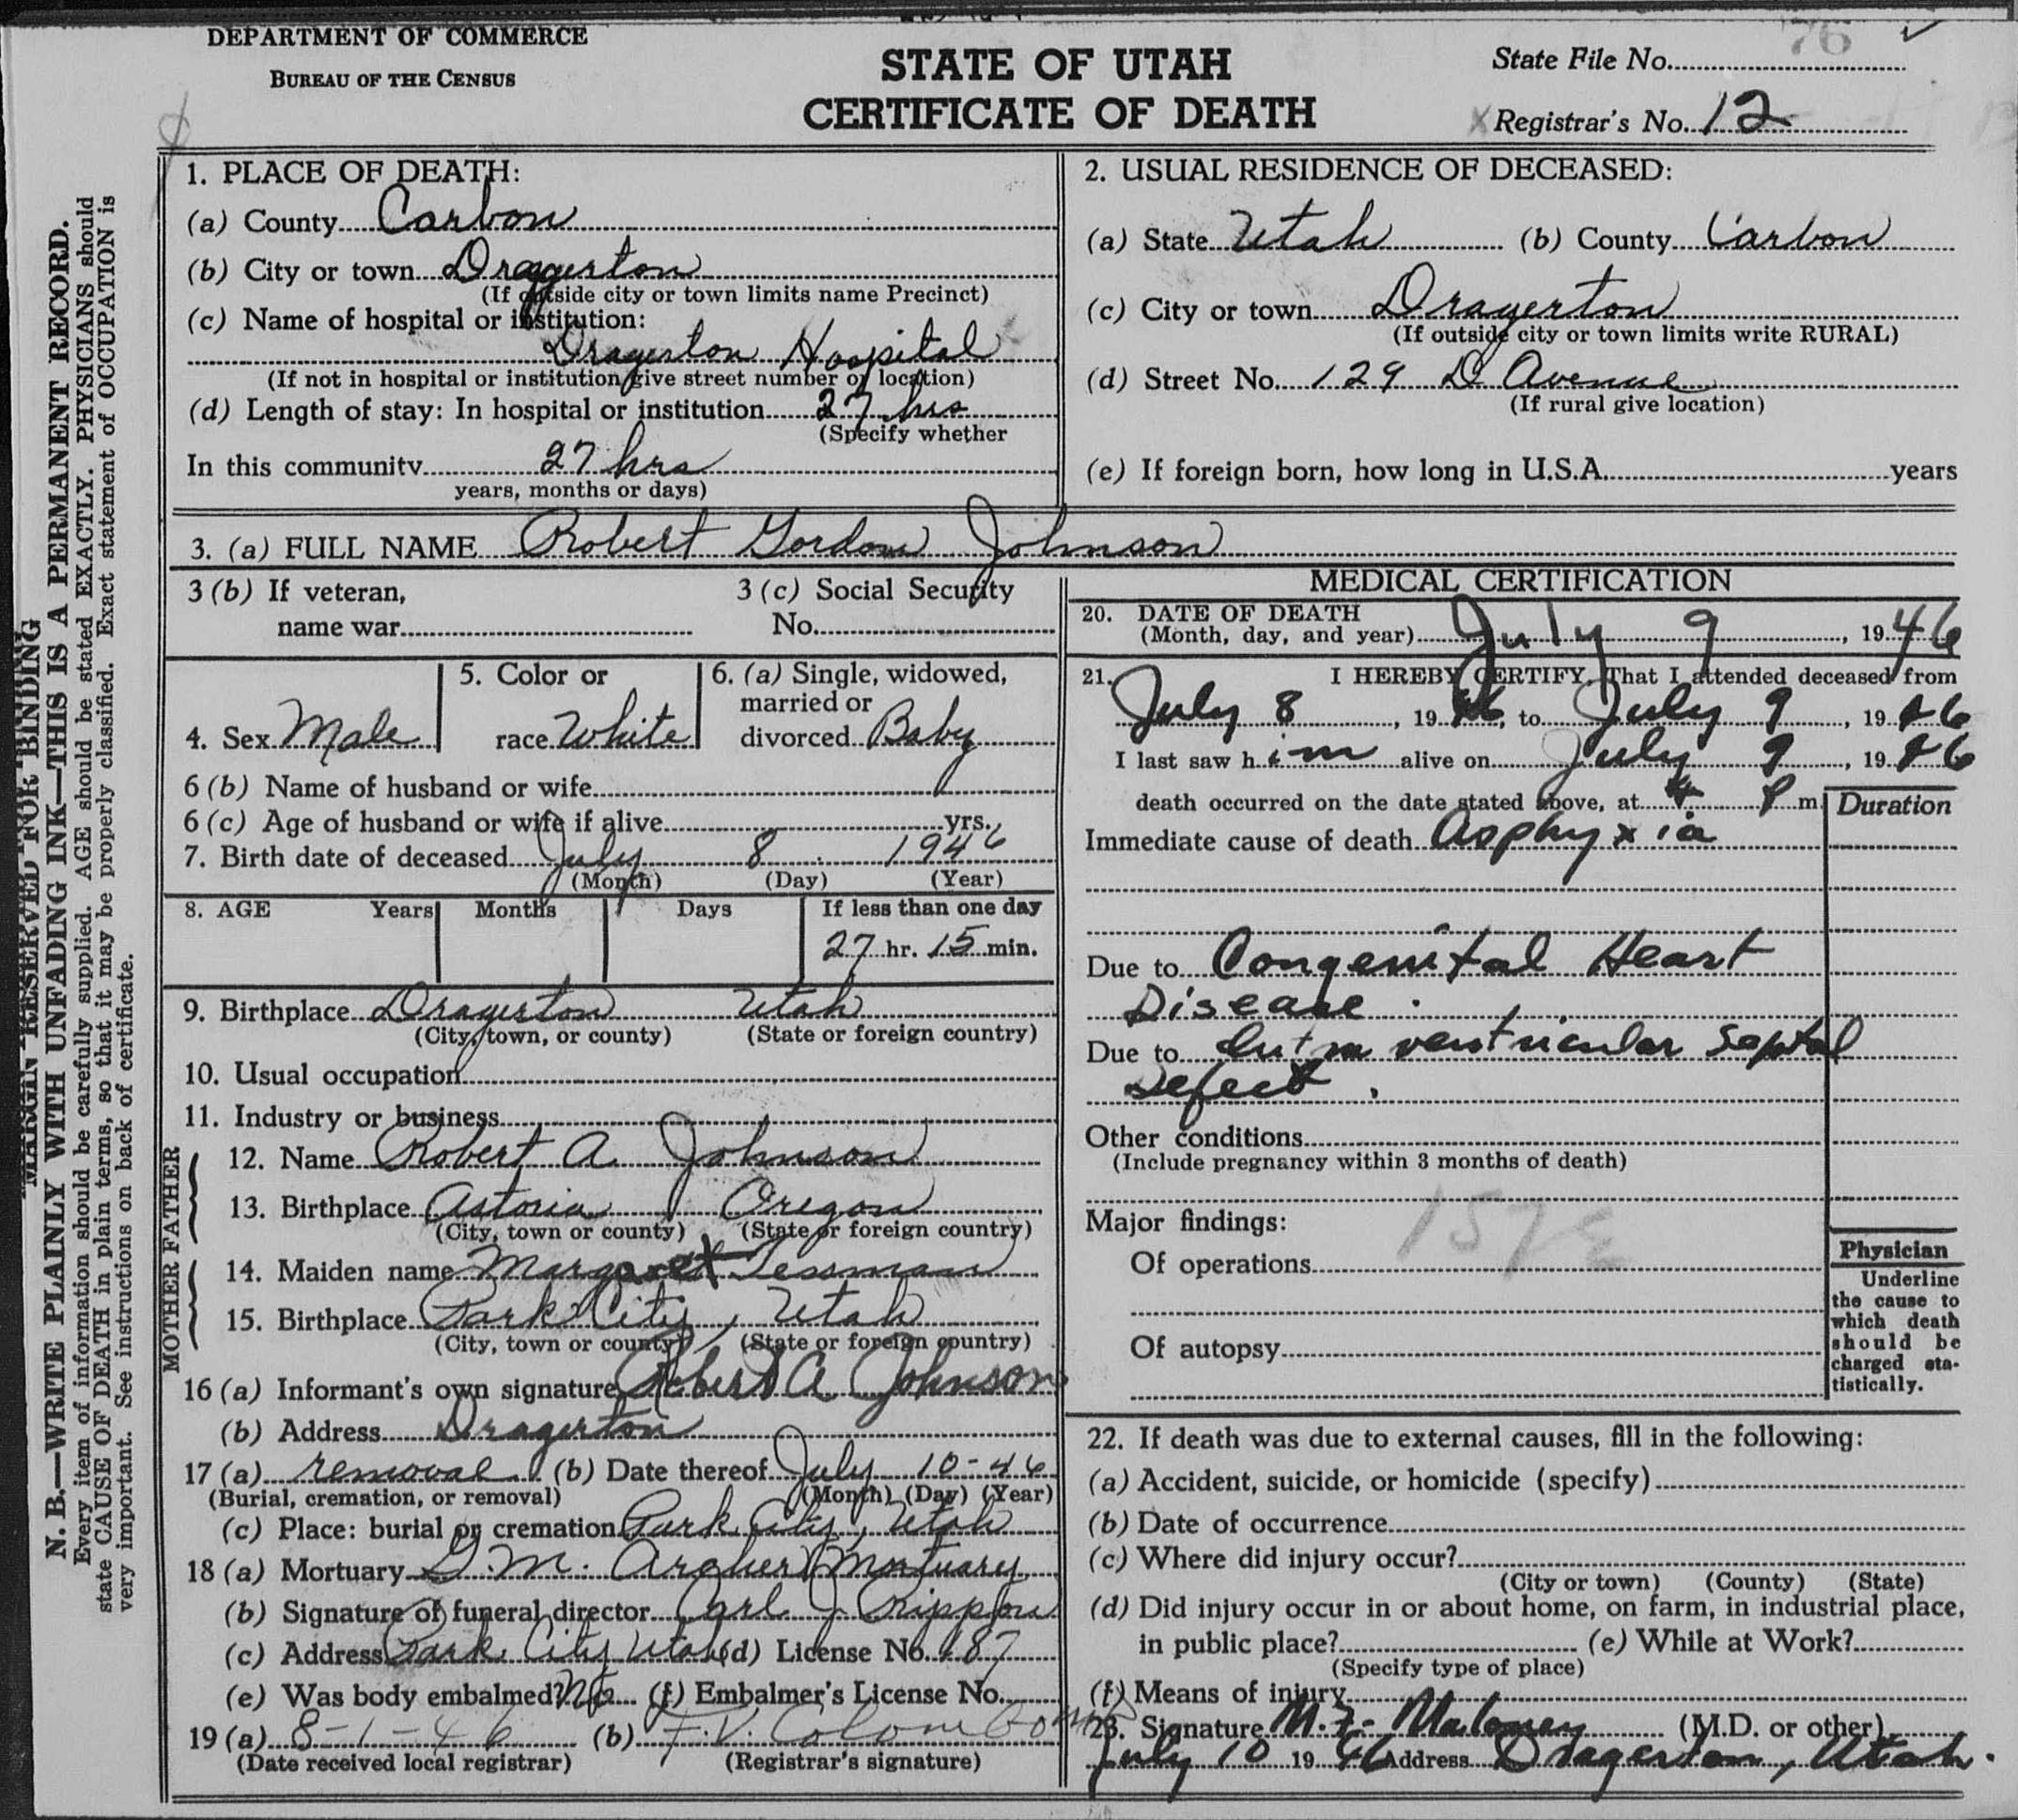 DEPARTMENT OF COMMERCE
BUREAU OF THE CENSUS
STATE OF UTAH
CERTIFICATE OF DEATH
State File No. 76
Registrar's No. 12
MARGIN RESERVED FOR BINDING
N. B.—WRITE PLAINLY WITH UNFADING INK—THIS IS A PERMANENT RECORD.
Every item of information should be carefully supplied. AGE should be stated EXACTLY. PHYSICIANS should
state CAUSE OF DEATH in plain terms, so that it may be properly classified. Exact statement of OCCUPATION is
very important. See instructions on back of certificate.
1. PLACE OF DEATH:
(a) County Carbon
(b) City or town Dragerton
(If outside city or town limits name Precinct)
(c) Name of hospital or institution:
Dragerton Hospital
(If not in hospital or institution give street number or location)
(d) Length of stay: In hospital or institution 27 hrs
(Specify whether
In this community 27 hrs
years, months or days)
2. USUAL RESIDENCE OF DECEASED:
(a) State Utah (b) County Carbon
(c) City or town Dragerton
(If outside city or town limits write RURAL)
(d) Street No. 129 D Avenue
(If rural give location)
(e) If foreign born, how long in U.S.A. years
3. (a) FULL NAME Robert Gordon Johnson
3 (b) If veteran,
name war
3 (c) Social Security
No.
4. Sex Male
5. Color or
race White
6. (a) Single, widowed,
married or
divorced Baby
6 (b) Name of husband or wife
6 (c) Age of husband or wife if alive yrs.
7. Birth date of deceased July 8 1946
(Month) (Day) (Year)
8. AGE Years Months Days If less than one day
27 hr. 15 min.
9. Birthplace Dragerton Utah
(City, town, or county) (State or foreign country)
10. Usual occupation
11. Industry or business
FATHER
12. Name Robert A. Johnson
13. Birthplace Astoria Oregon
(City, town or county) (State or foreign country)
MOTHER
14. Maiden name Margaret Tessman
15. Birthplace Park City, Utah
(City, town or county) (State or foreign country)
16 (a) Informant's own signature Robert A Johnson
(b) Address Dragerton
17 (a) removal (b) Date thereof July 10-46
(Burial, cremation, or removal) (Month) (Day) (Year)
(c) Place: burial or cremation Park City, Utah
18 (a) Mortuary G. M. Archer Mortuary
(b) Signature of funeral director Carl J Rippon
(c) Address Park City Utah (d) License No. 187
(e) Was body embalmed? No (f) Embalmer's License No.
19 (a) 8-1-46 (b) F. V. Colombo
(Date received local registrar) (Registrar's signature)
MEDICAL CERTIFICATION
20. DATE OF DEATH
(Month, day, and year) July 9, 1946
21. I HEREBY CERTIFY, That I attended deceased from
July 8, 1946, to July 9, 1946
I last saw him alive on July 9, 1946
death occurred on the date stated above, at 4 P m.
Duration
Immediate cause of death Asphyxia
Due to Congenital Heart
Disease.
Due to ventricular Septal
defect.
Other conditions
(Include pregnancy within 3 months of death)
Major findings:
Of operations
Of autopsy
Physician
Underline
the cause to
which death
should be
charged sta-
tistically.
22. If death was due to external causes, fill in the following:
(a) Accident, suicide, or homicide (specify)
(b) Date of occurrence
(c) Where did injury occur?
(City or town) (County) (State)
(d) Did injury occur in or about home, on farm, in industrial place,
in public place? (e) While at Work?
(Specify type of place)
(f) Means of injury
23. Signature Maloney (M.D. or other)
July 10 1946 Address Dragerton, Utah.